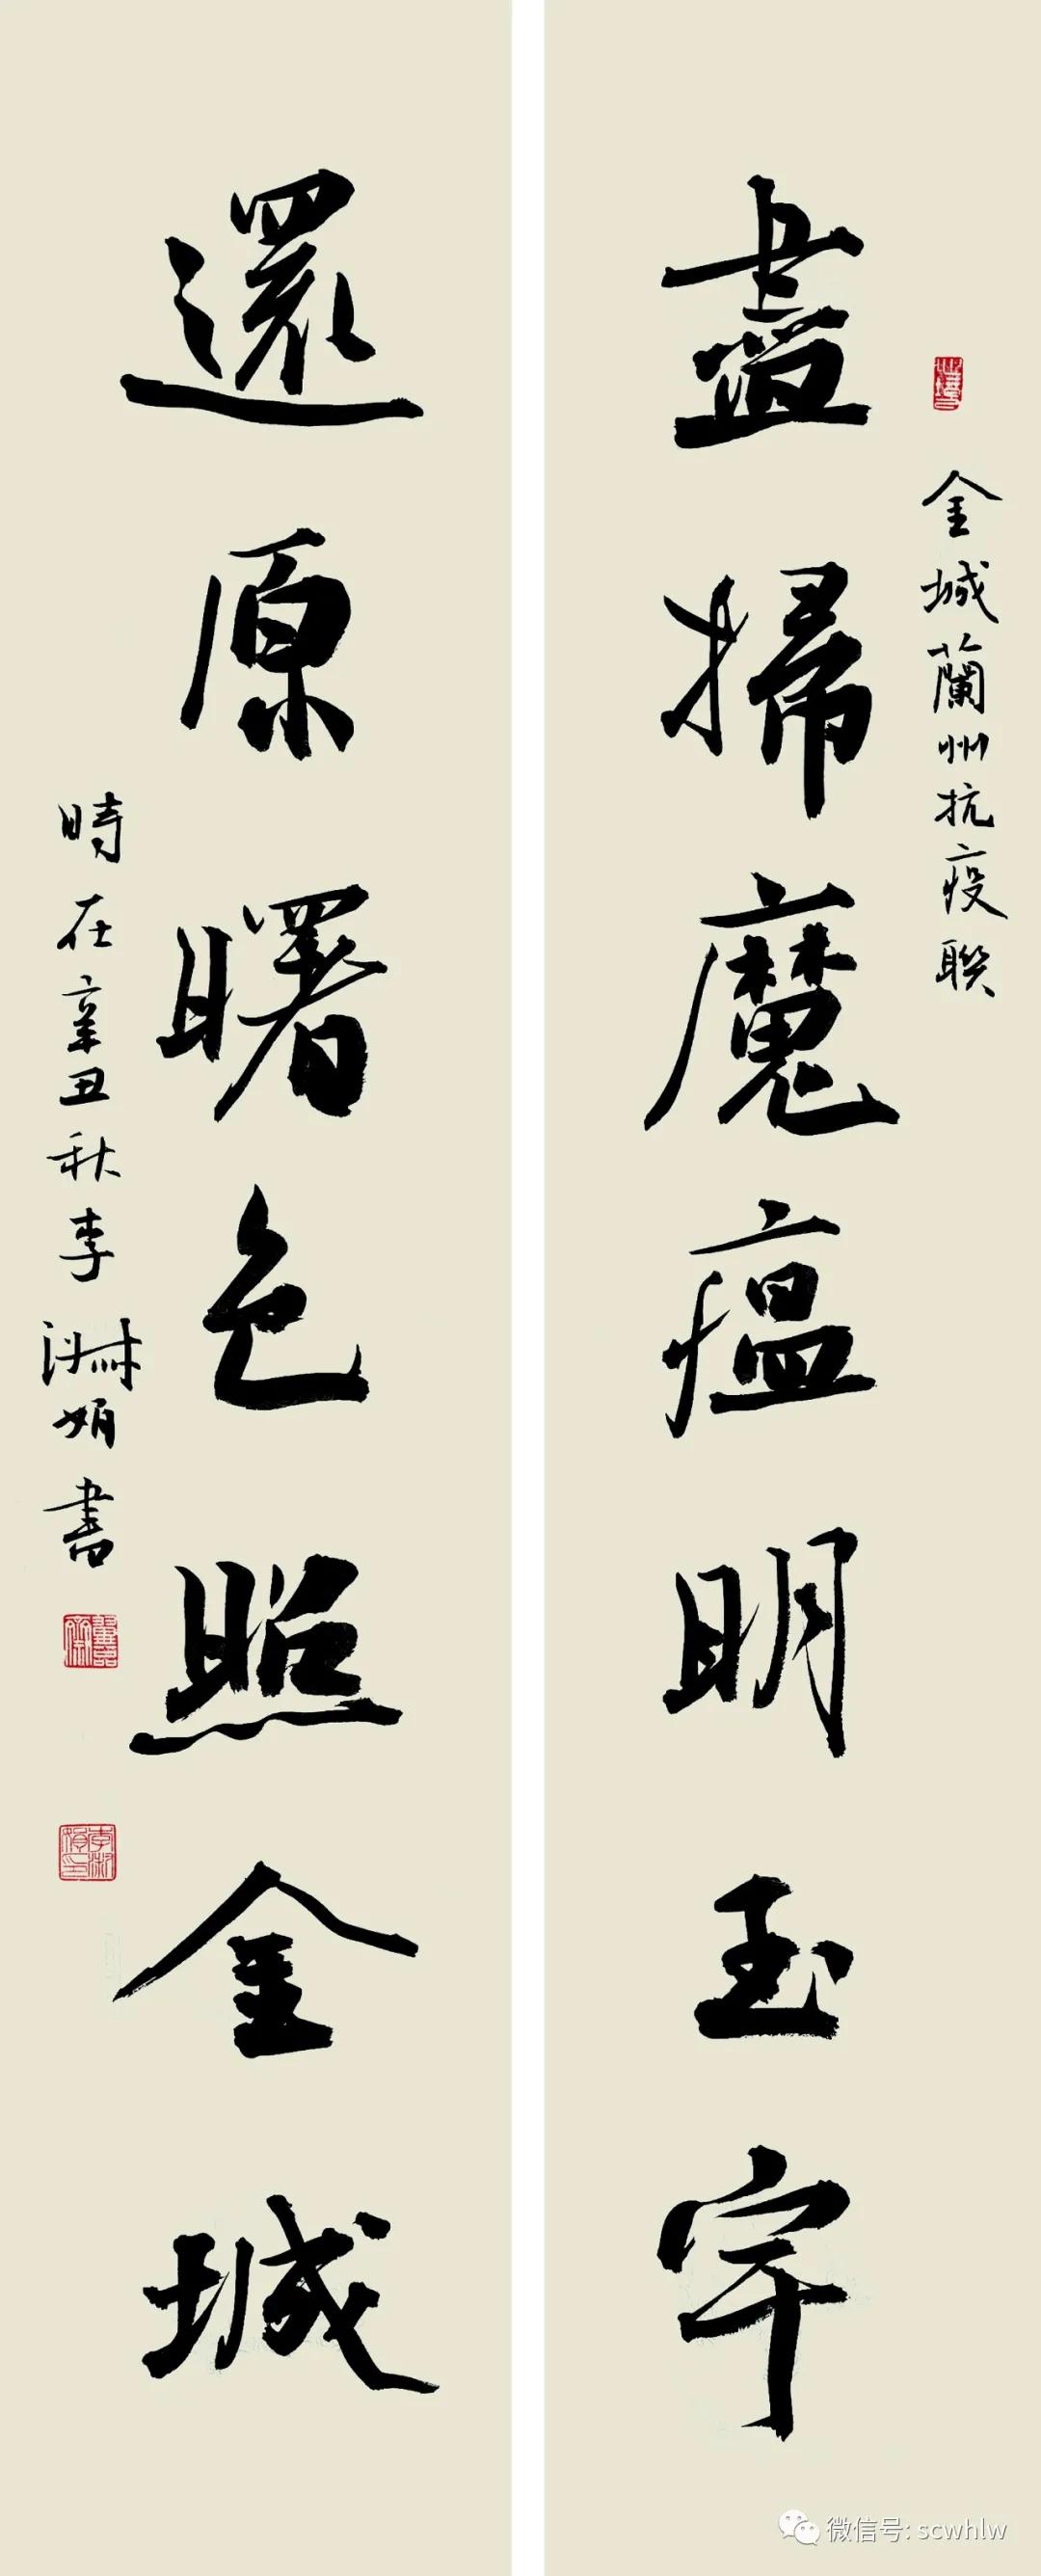 金城蘭州抗疫聯
盡掃魔瘟明玉宇
還原曙色照金城
時在辛丑秋李淑娟書
微信号: scwhlw